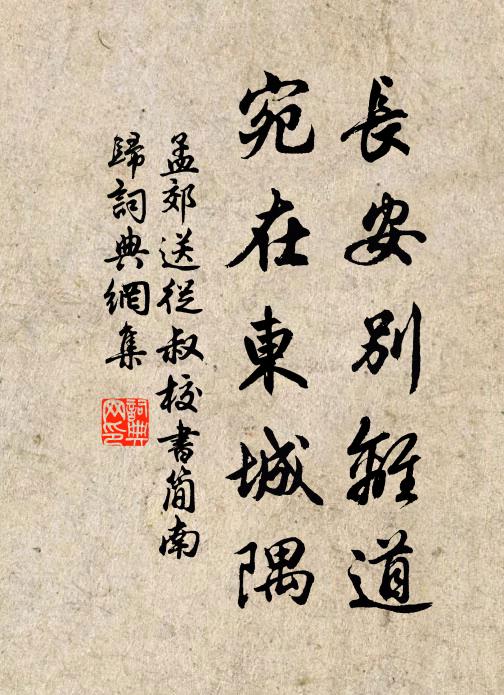 長安別離道
宛在東城隅
孟郊送從叔校書簡南
歸詞典網集
詞典
網印